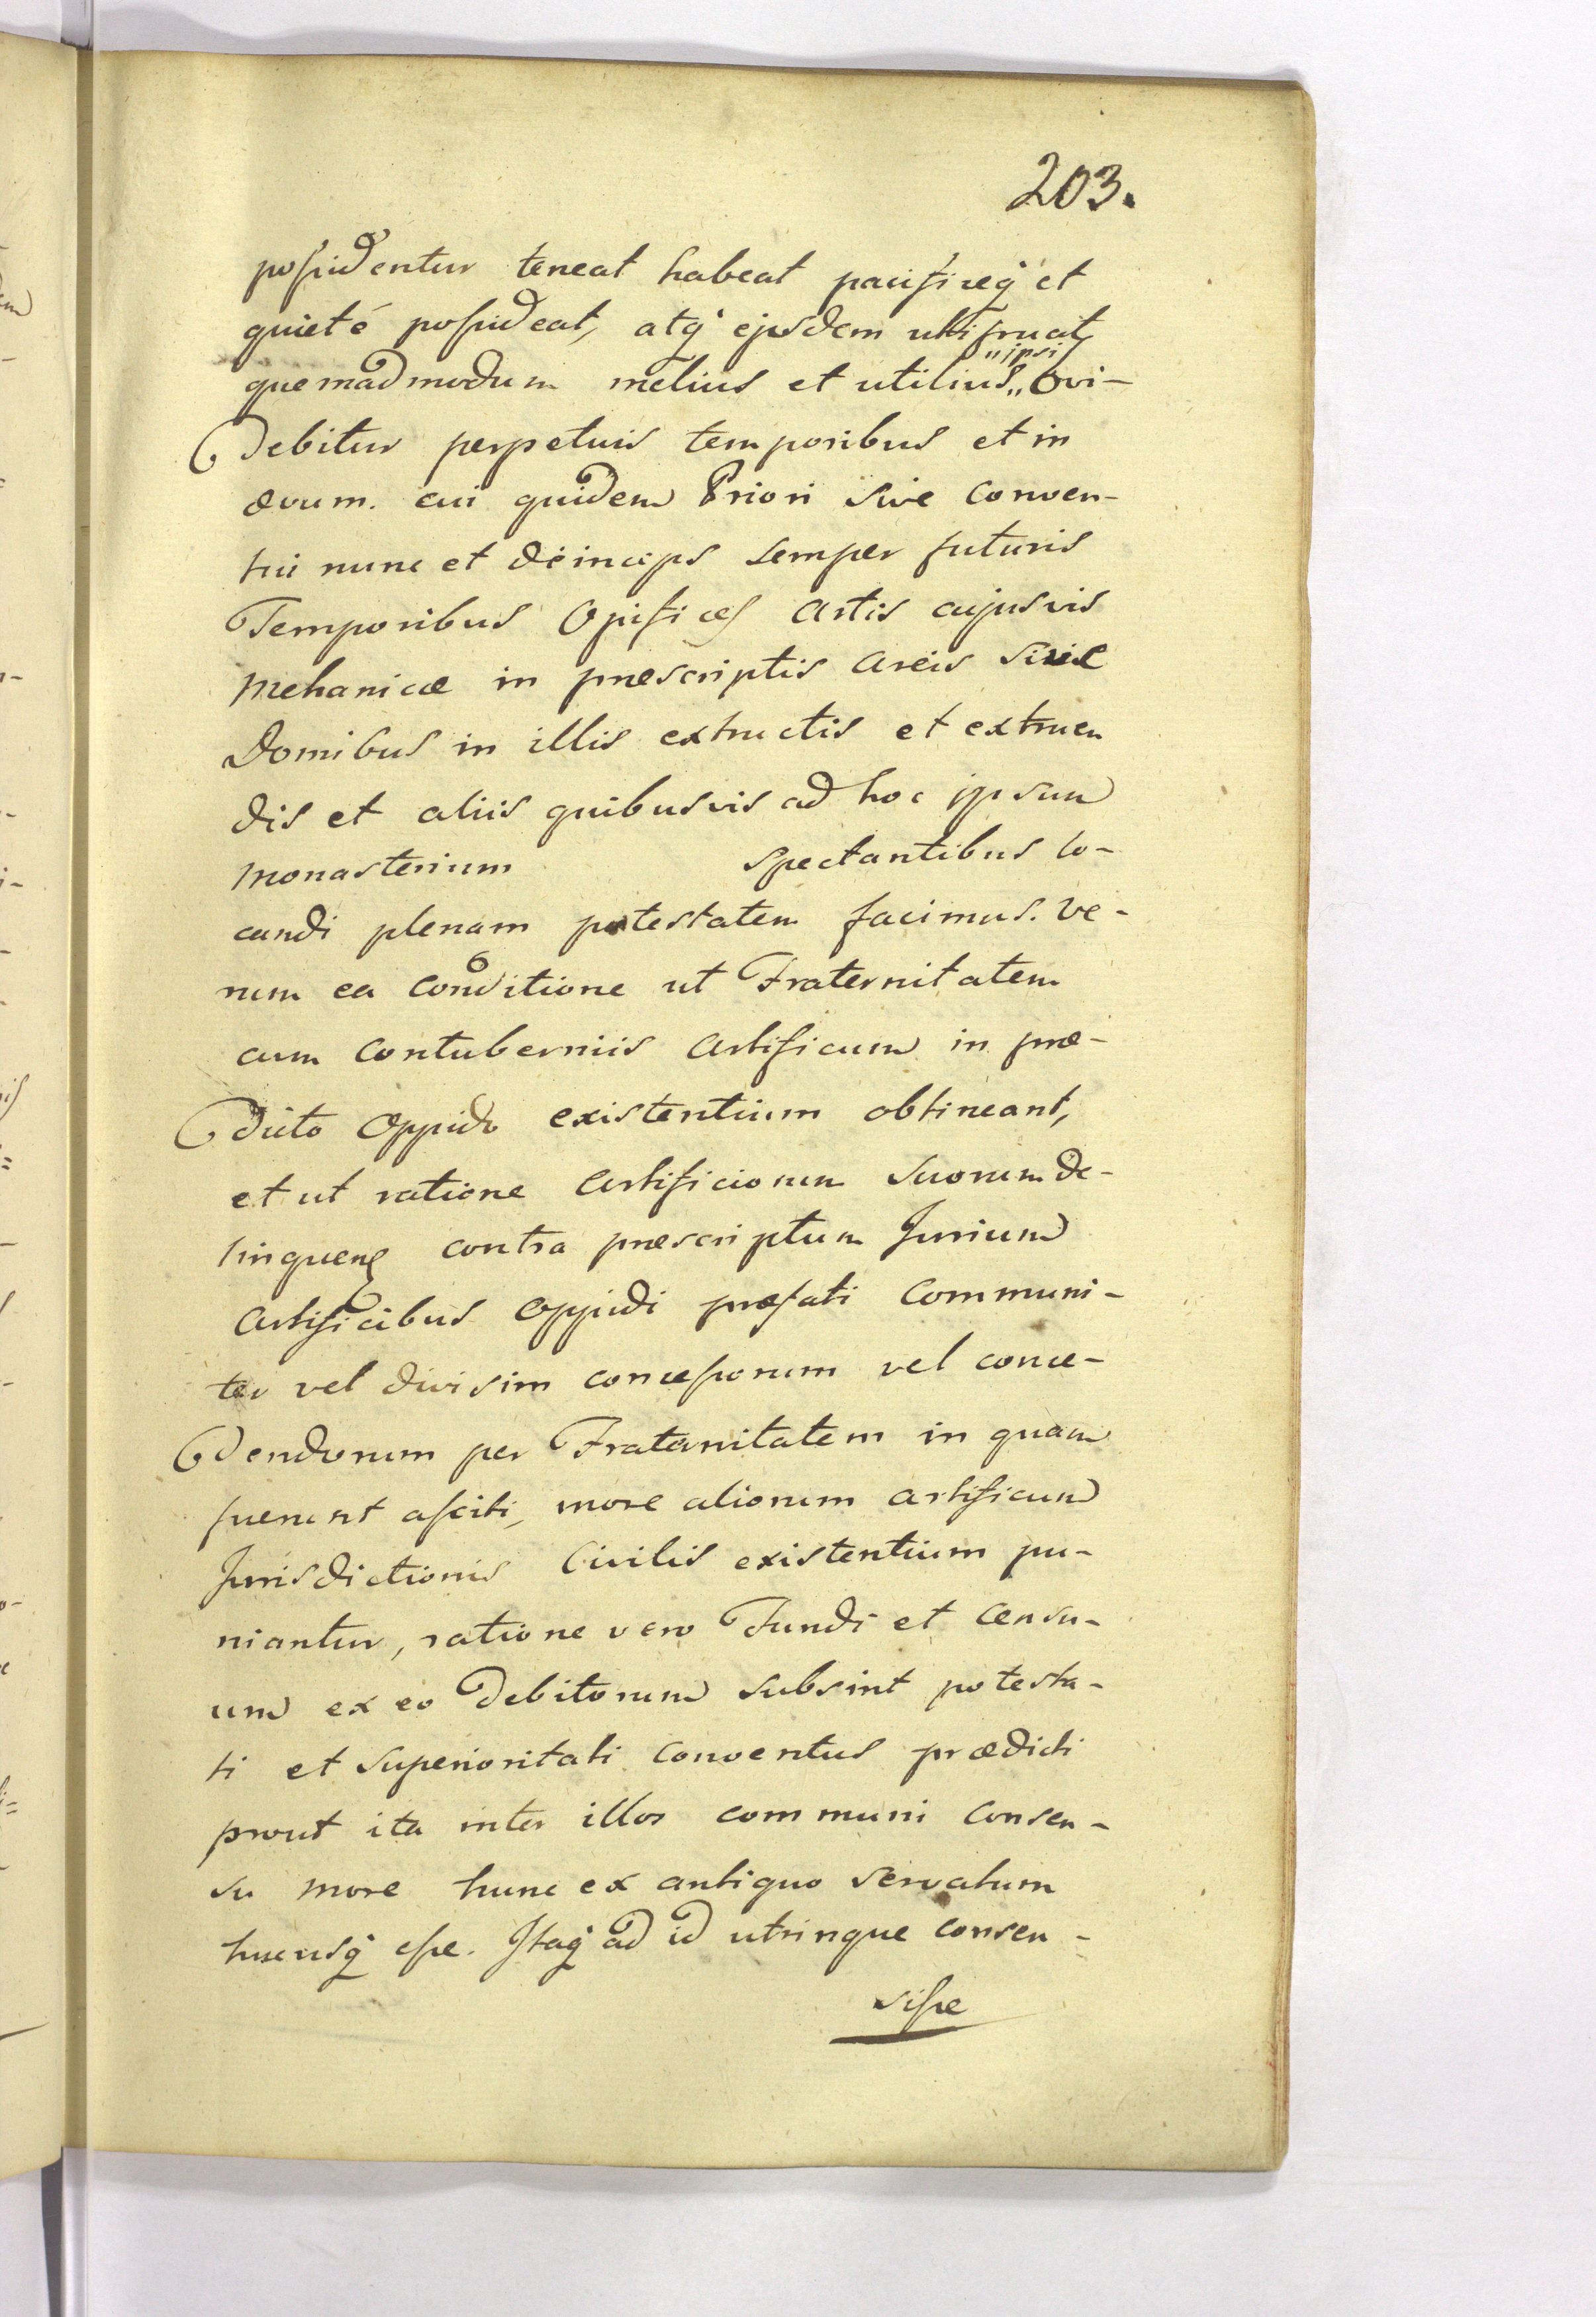 203.
possidentur teneat habeat pacificeq́ et
quieté possideat, atq́ ejusdem utifruat
quemadmodum melius et utilius „ipsi vi-
debitur perpetuis temporibus et in
ævum. cui quidem Priori sive Conven-
tui nunc et deinceps semper futuris
Temporibus Opifices Artis cujusvis
Mehanicæ in præscriptis Areis sive
Domibus in illis extructis et extruen
dis et aliis quibusvis ad hoc ipsum
Monasterium spectantibus lo-
candi plenam potestatem facimus. Ve-
rum ea Conditione ut Fraternitatem
cum Contuberniis Artificum in præ-
dicto Oppido existentium obtineant,
et ut ratione Artificiorum suorum de-
linquens contra præscriptum Jurium
Artificibus Oppidi præfati Communi-
ter vel divisim concessorum vel conce-
dendorum per Fraternitatem in quam
fuerunt asciti, more aliorum artificum
Jurisdictionis Civilis existentium pu-
niantur, ratione vero Fundi et Censu-
um ex eo debitorum subsint potesta-
ti et superioritati Conventus prædicti
prout ita inter illos communi Consen-
su more hunc ex antiquo servatum
hucusq́ esse. Itaq́ ad id utrinque consen-
sisse